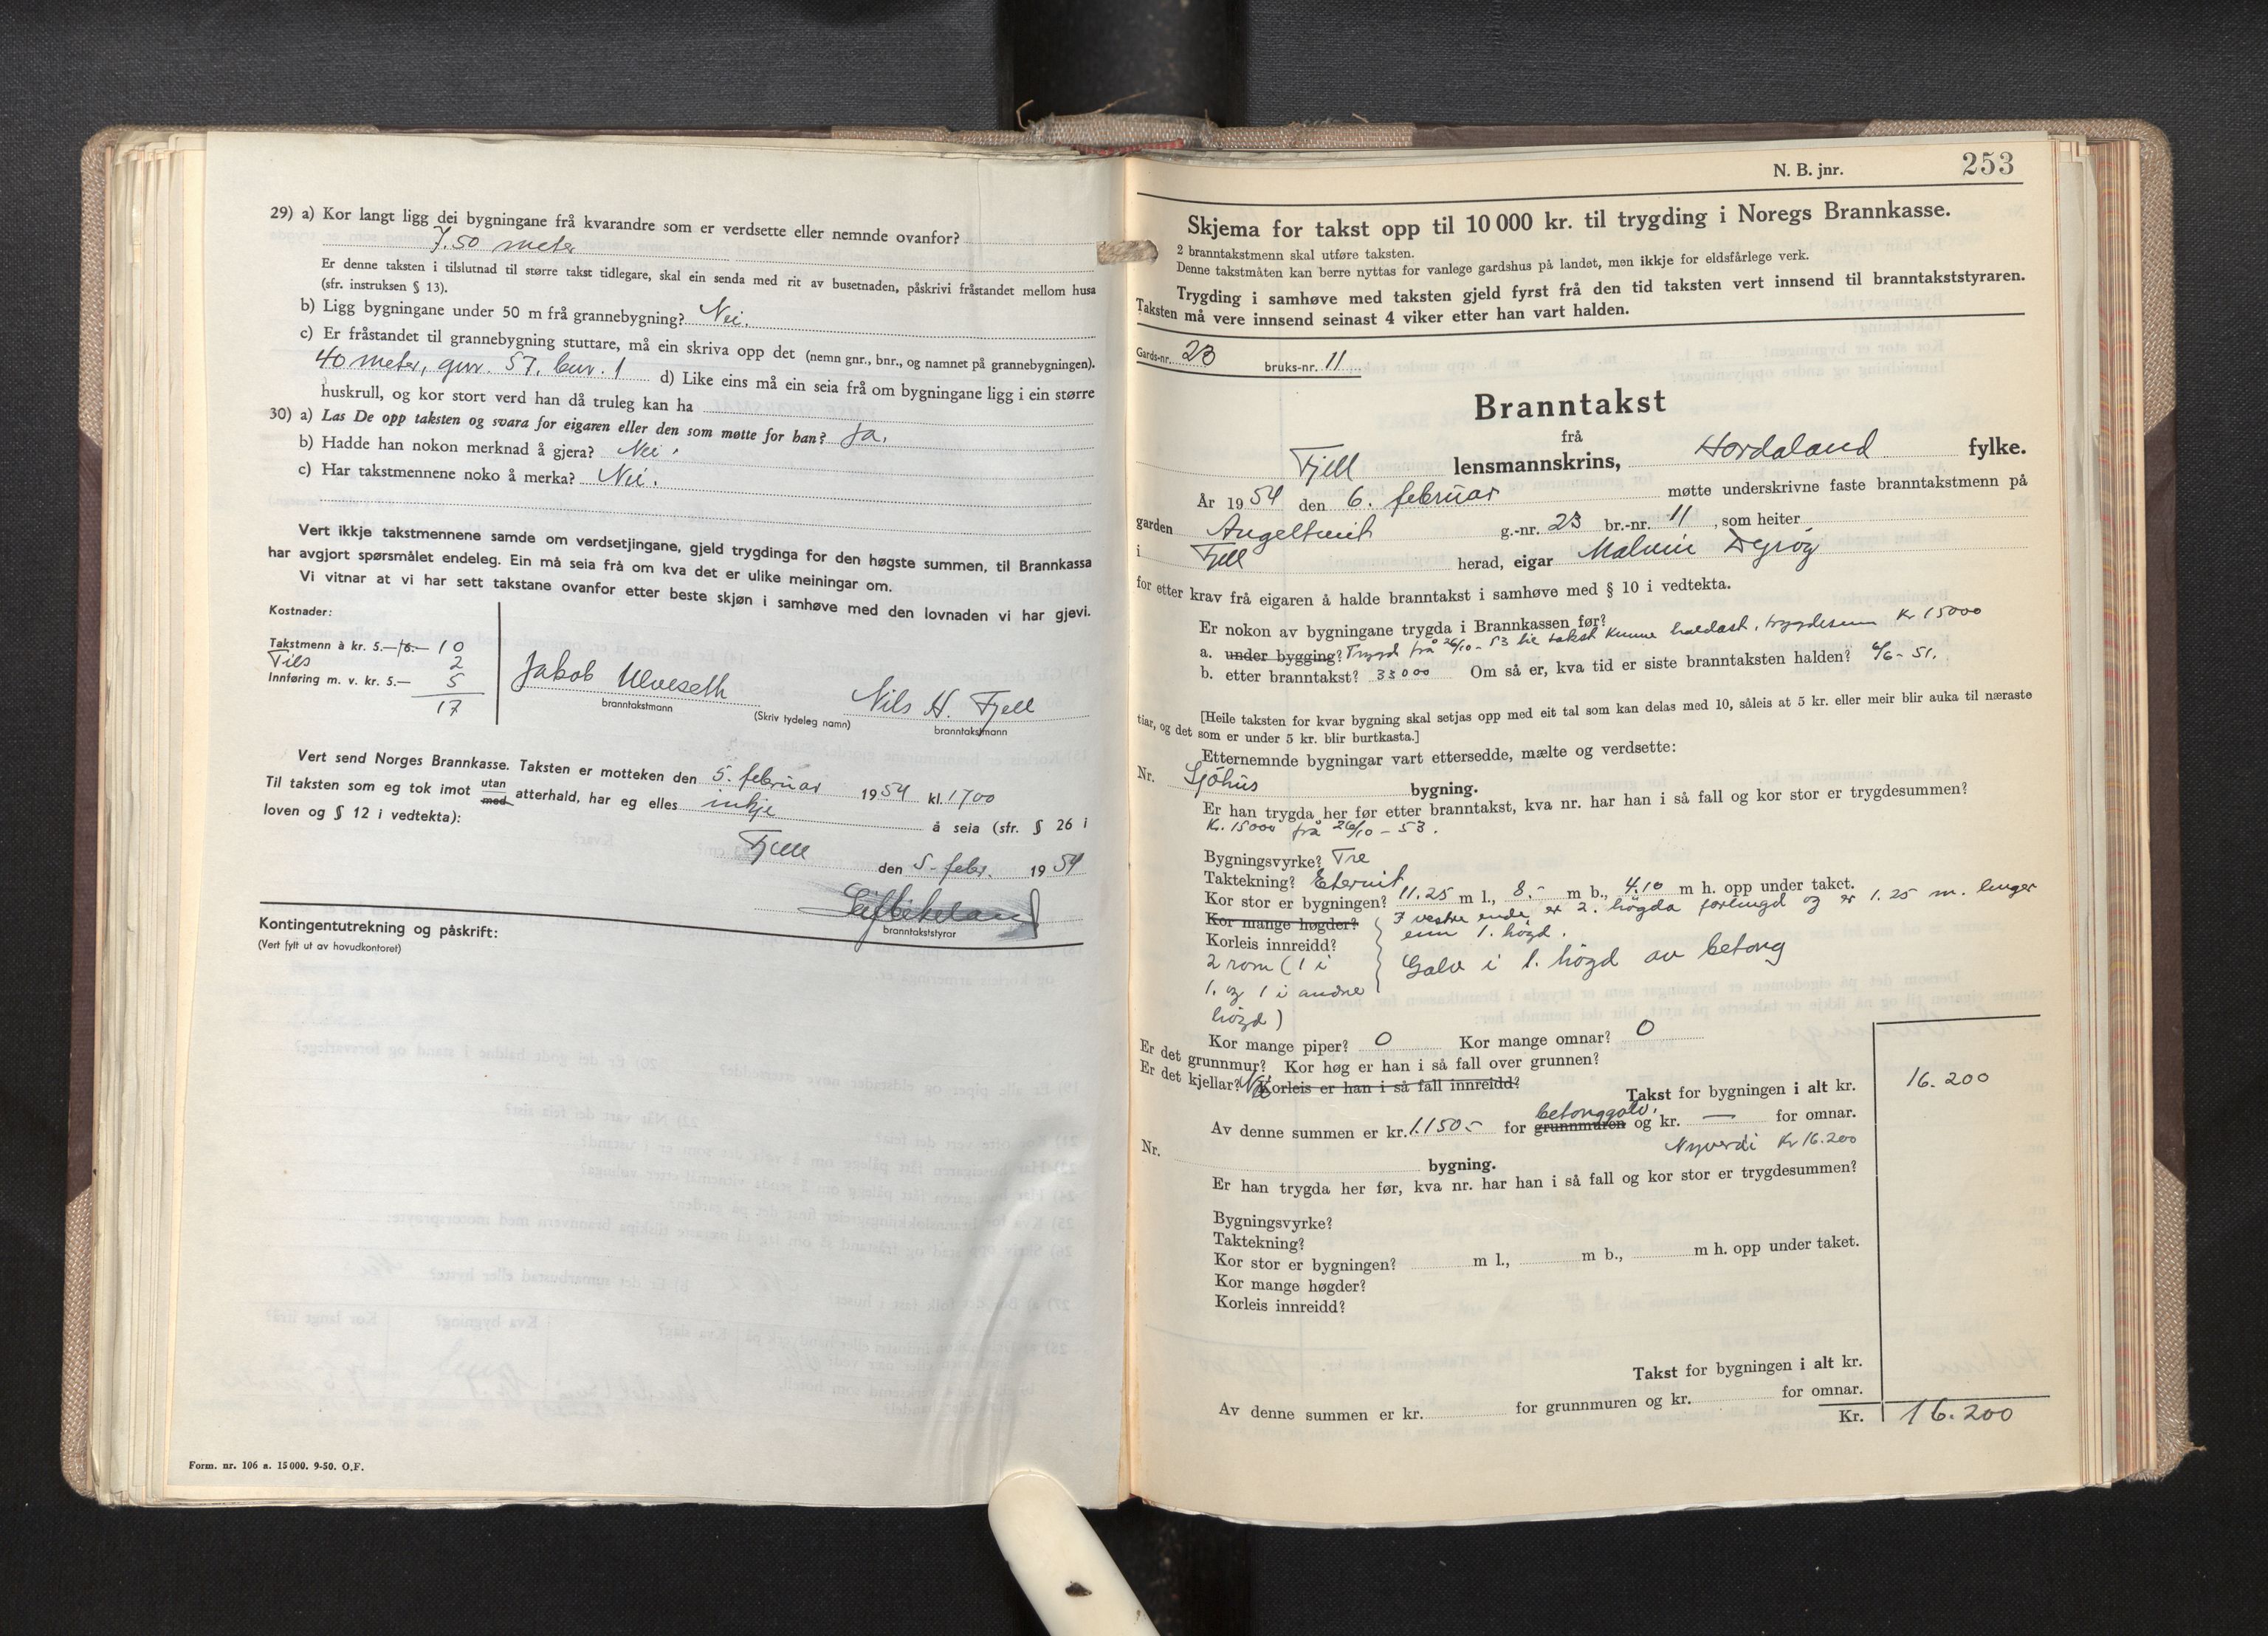 29) a) Kor langt ligg dei bygningane frå kvarandre som er verdsette eller nemnde ovanfor?
7.50 meter
Er denne taksten i tilslutnad til større takst tidlegare, skal ein senda med rit av busetnaden, påskrivi fråstandet mellom husa
(sfr. instruksen § 13).
b) Ligg bygningane under 50 m frå grannebygning? Nei.
c) Er fråstandet til grannebygning stuttare, må ein skriva opp det (nemn gnr., bnr., og namnet på grannebygningen).
40 meter, gnr. 57, bnr. 1 d) Like eins må ein seia frå om bygningane ligg i ein større
huskrull, og kor stort verd han då truleg kan ha
30) a) Las De opp taksten og svara for eigaren eller den som møtte for han? Ja.
b) Hadde han nokon merknad å gjera? Nei.
c) Har takstmennene noko å merka? Nei.
Vert ikkje takstmennene samde om verdsetjingane, gjeld trygdinga for den høgste summen, til Brannkassa
har avgjort spørsmålet endeleg. Ein må seia frå om kva det er ulike meiningar om.
Vi vitnar at vi har sett takstane ovanfor etter beste skjøn i samhøve med den lovnaden vi har gjevi.
Kostnader:
Takstmenn à kr. 5.— 6.— 10
Tils 2
Innføring m. v. kr. 5.— 5
17
Jakob Ulveseth Nils H. Fjell
branntakstmann (Skriv tydeleg namn) branntakstmann
Vert send Norges Brannkasse. Taksten er motteken den 5. februar 1954 kl. 1700
Til taksten som eg tok imot utan med atterhald, har eg elles inkje å seia (sfr. § 26 i
loven og § 12 i vedtekta):
Fjell den 5. febr. 1954
branntakststyrar
Kontingentutrekning og påskrift:
(Vert fylt ut av hovudkontoret)
Form. nr. 106 a. 15 000. 9-50. O.F.
N. B. jnr. 253
Skjema for takst opp til 10 000 kr. til trygding i Noregs Brannkasse.
2 branntakstmenn skal utføre taksten.
Denne takstmåten kan berre nyttas for vanlege gardshus på landet, men ikkje for eldsfårlege verk.
Trygding i samhøve med taksten gjeld fyrst frå den tid taksten vert innsend til branntakststyraren.
Taksten må vere innsend seinast 4 viker etter han vart halden.
Gards-nr. 23 bruks-nr. 11
Branntakst
frå
Fjell lensmannskrins, Hordaland fylke.
År 1954 den 6. februar møtte underskrivne faste branntakstmenn på
garden Angeltveit g.-nr. 23 br.-nr. 11, som heiter
i Fjell herad, eigar Malvin Dyrøy
for etter krav frå eigaren å halde branntakst i samhøve med § 10 i vedtekta.
Er nokon av bygningane trygda i Brannkassen før?
a. under bygging? Trygd frå 26/10-53 til takst kunne haldast, trygdesum kr 15000
b. etter branntakst? 33000 Om så er, kva tid er siste branntaksten halden? 6/6-51.
[Heile taksten for kvar bygning skal setjas opp med eit tal som kan delas med 10, såleis at 5 kr. eller meir blir auka til næraste
tiar, og det som er under 5 kr. blir burtkasta.]
Etternemnde bygningar vart ettersedde, mælte og verdsette:
Nr. Sjöhus bygning.
Er han trygda her før etter branntakst, kva nr. har han i så fall og kor stor er trygdesummen?
Kr. 15000 frå 26/10-53.
Bygningsvyrke? Tre
Taktekning? Eternit
Kor stor er bygningen? 11.25 m l., 8.- m b., 4.10 m h. opp under taket.
Kor mange høgder? I vestre ende er 2. högda forlengd og er 1.25 m. lenger
enn 1. högd.
Korleis innreidd?
2 rom (1 i Golv i 1. högd av betong
1. og 1 i andre
högd)
Kor mange piper? 0 Kor mange omnar? 0
Er det grunnmur? Kor høg er han i så fall over grunnen?
Er det kjellar? Nei Korleis er han i så fall innreidd?
Takst for bygningen i alt kr. 16.200
betonggolv.
Av denne summen er kr. 1.150- for grunnmuren og kr. — for omnar.
Nyverdi Kr 16.200
Nr. bygning.
Er han trygda her før, kva nr. har han i så fall og kor stor er trygdesummen?
Bygningsvyrke?
Taktekning?
Kor stor er bygningen? m l., m b., m h. opp under taket.
Kor mange høgder?
Korleis innreidd?
Takst for bygningen i alt kr.
Av denne summen er kr. for grunnmuren og kr. for omnar.
Kr. 16.200